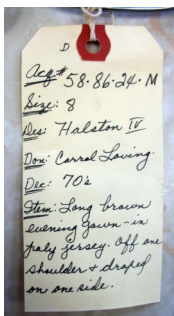 D
Acq# 58.86.24.M
Size: 8
Des: Halston IV
Don: Carral Loving.
Dec: 70's
Item: Long brown
evening gown - in
poly jersey. Off one
shoulder & draped
on one side.